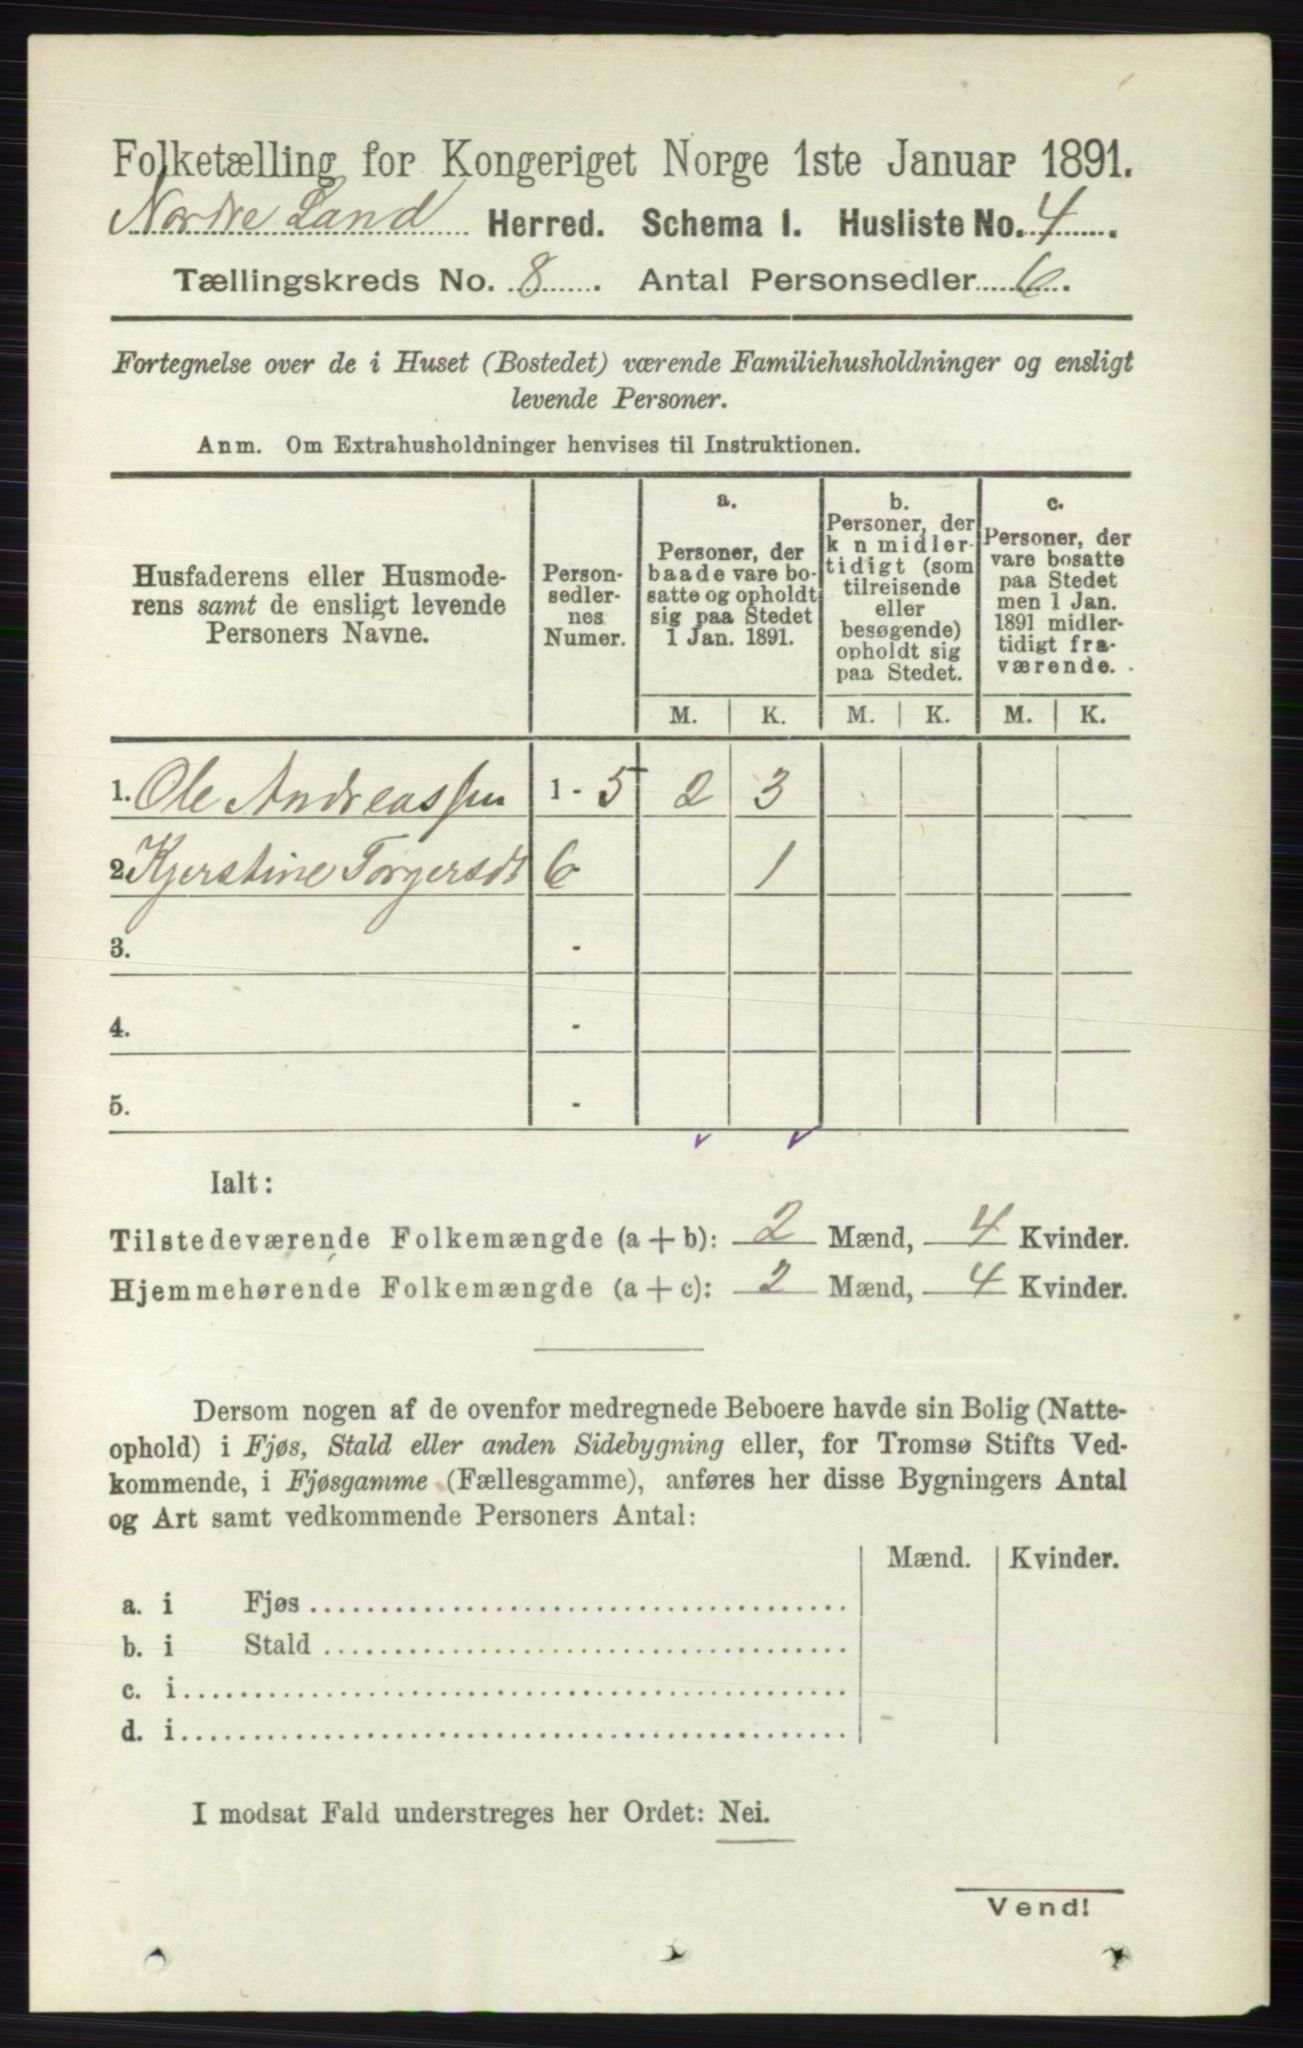 Folketælling for Kongeriget Norge 1ste Januar 1891.
Nordre Land Herred. Schema I. Husliste No. 4.
Tællingskreds No. 8. Antal Personsedler 6.
Fortegnelse over de i Huset (Bostedet) værende Familiehusholdninger og ensligt
levende Personer.
Anm. Om Extrahusholdninger henvises til Instruktionen.
Husfaderens eller Husmode-
rens samt de ensligt levende
Personers Navne.
Person-
sedler-
nes
Numer.
a.
Personer, der
baade vare bo-
satte og opholdt
sig paa Stedet
1 Jan. 1891.
b.
Personer, der
k n midler-
tidigt (som
tilreisende
eller
besøgende)
opholdt sig
paa Stedet.
c.
Personer, der
vare bosatte
paa Stedet
men 1 Jan.
1891 midler-
tidigt fra-
værende.
M. K. M. K. M. K.
1. Ole Andreassen 1 - 5 2 3
2. Kjerstine Torgersdt 6 1
3. -
4. -
5. -
Ialt:
Tilstedeværende Folkemængde (a + b): 2 Mænd, 4 Kvinder.
Hjemmehørende Folkemængde (a + c): 2 Mænd, 4 Kvinder.
Dersom nogen af de ovenfor medregnede Beboere havde sin Bolig (Natte-
ophold) i Fjøs, Stald eller anden Sidebygning eller, for Tromsø Stifts Ved-
kommende, i Fjøsgamme (Fællesgamme), anføres her disse Bygningers Antal
og Art samt vedkommende Personers Antal:
Mænd. Kvinder.
a. i Fjøs
b. i Stald
c. i
d. i
I modsat Fald understreges her Ordet: Nei.
Vend!